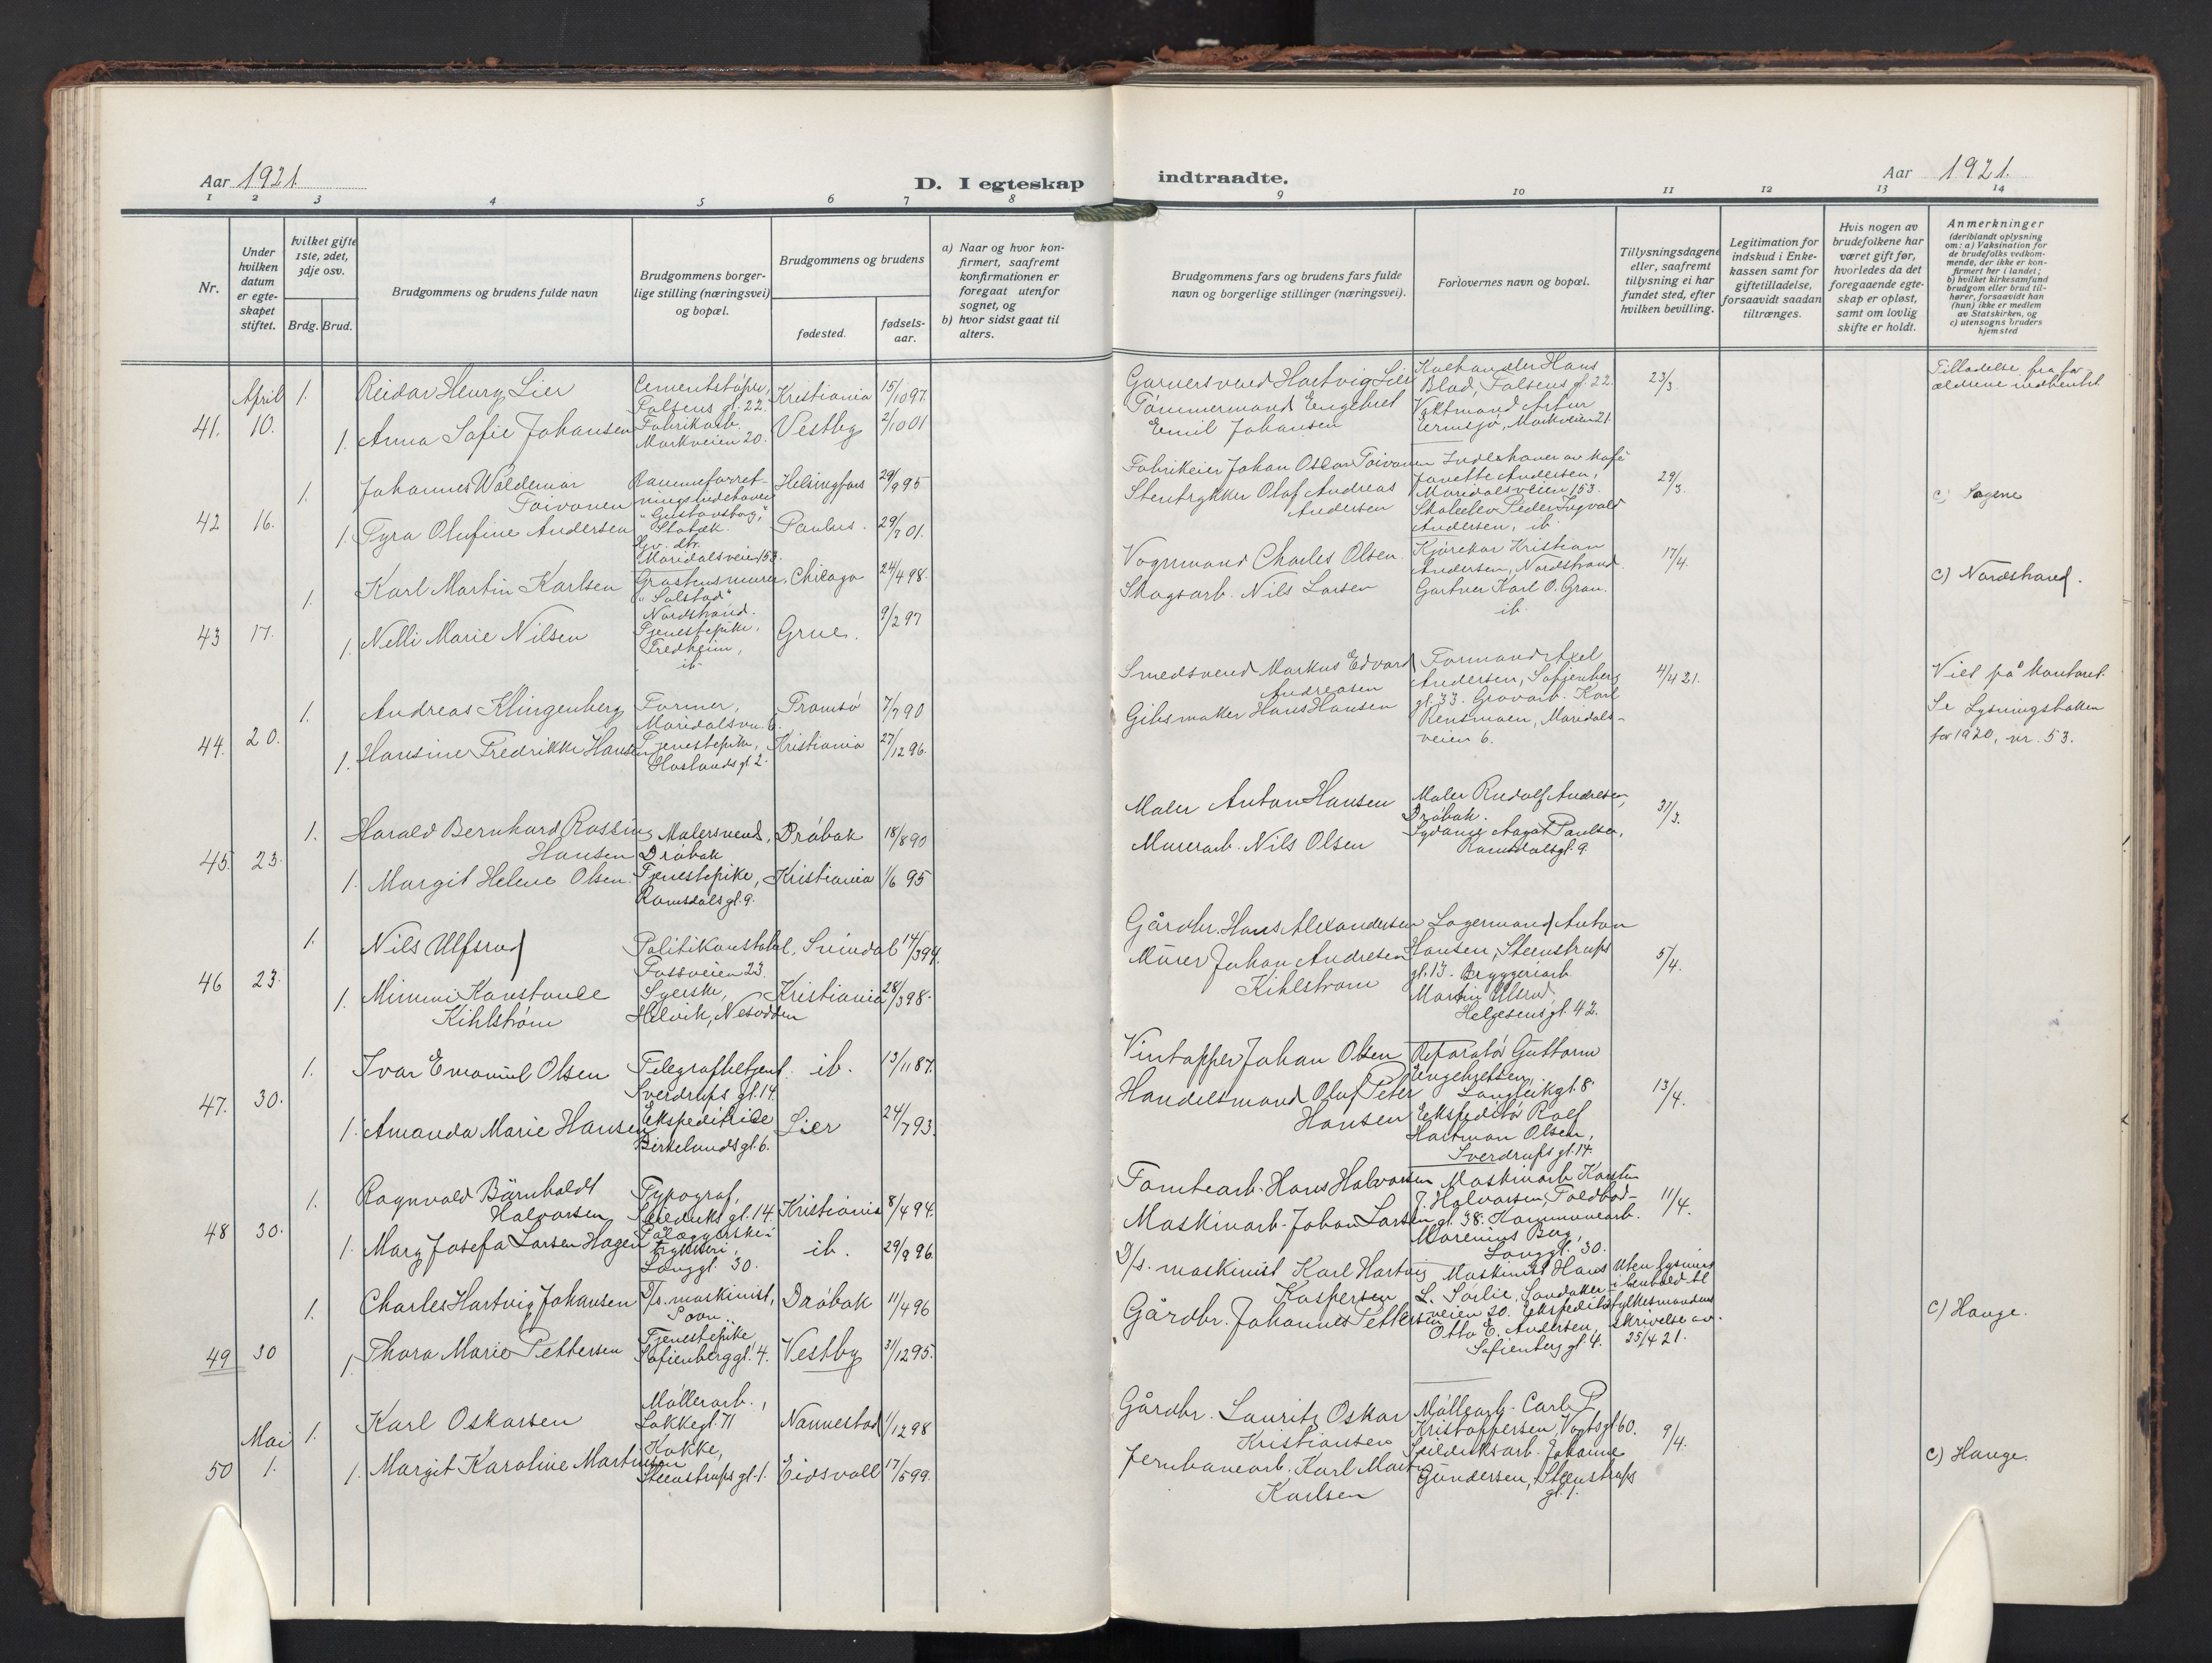 Aar 1921.
D. I egteskap
indtraadte.
Aar 1921.
1 2 3 4 5 6 7 8 9 10 11 12 13 14
Nr.
Under hvilken datum er egteskapet stiftet.
hvilket gifte 1ste, 2det, 3dje osv.
Brdg. Brud.
Brudgommens og brudens fulde navn
Brudgommens borgerlige stilling (næringsvei) og bopæl.
Brudgommens og brudens
fødested.
fødsels-aar.
a) Naar og hvor konfirmert, saafremt konfirmationen er foregaat utenfor sognet, og
b) hvor sidst gaat til alters.
Brudgommens fars og brudens fars fulde navn og borgerlige stillinger (næringsvei).
Forlovernes navn og bopæl.
Tillysningsdagene eller, saafremt tillysning ei har fundet sted, efter hvilken bevilling.
Legitimation for indskud i Enkekassen samt for giftetilladelse, forsaavidt saadan tiltrænges.
Hvis nogen av brudefolkene har været gift før, hvorledes da det foregaaende egteskap er opløst, samt om lovlig skifte er holdt.
Anmerkninger
(deriblandt oplysning om: a) Vaksination for de brudefolks vedkommende, der ikke er konfirmert her i landet; b) hvilket kirkesamfund brudgom eller brud tilhører, forsaavidt han (hun) ikke er medlem av Statskirken, og c) utensogns bruders hjemsted
41. April 10.
1. Reidar Henry Lier
Cementstøper, Falsens gl. 22.
Kristiania 15/10 97.
1. Anna Sofie Johansen
Fabrikarb. Markveien 20.
Vestby 2/10 01
Garversvend Hartvig Lier
Tømmermand Engebret Emil Johansen
Hans Blad, Falsens gl. 22.
Vaktmand Artur Ermesjø, Markveien 21.
23/3.
Tilladelse fra forældrene indhentet
42 16.
1. Johannes Waldemar Toivonen
"Gustavsborg," Stabæk.
Helsingfors 29/9 95
1. Tyra Olufine Andersen
Gv. dtr. Maridalsveien 153.
Paulus. 29/7 01.
Fabrikeier Johan Oscar Toivonen
Stentrykker Olaf Andreas Andersen
Indehaver av kafé Janette Andersen, Maridalsveien 153.
Peder Ingvald Andersen, ib.
29/3.
c) Sagene
43 17.
1. Karl Martin Karlsen
"Solstad" Nordstrand.
Chicago 24/4 98.
1. Nelli Marie Nilsen
Tjenestepike, Fredheim, ib.
Grue. 9/2 97
Vognmand Charles Olsen.
Skogsarb. Nils Larsen
Kjørekar Kristian Andersen, Nordstrand.
Gartner Karl O. Gran. ib.
17/4.
c) Nordstrand.
44. 20.
1. Andreas Klingenberg
Former, Maridalsvn. 6.
Tromsø 7/7 90
1. Hansine Fredrikke Hansen
Tjenestepike, Haslunds gl. 2.
Kristiania 27/12 96.
Smedsvend Markus Edvard Andreasen
Gibsmaker Hans Hansen
Formand Axel Andersen, Sofienberg gl. 33. Gravarb. Karl Rensmoen, Maridalsveien 6.
4/4 21.
Viet på kontoret.
Se Lysningsboken
for 1920, nr. 53.
45. 23.
1. Harald Bernhard Rossing Hansen
Malersvend, Drøbak
Drøbak 18/8 90
1. Margit Helene Olsen.
Tjenestepike, Romsdals gl. 9.
Kristiania 1/6 95
Maler Anton Hansen
Murerarb. Nils Olsen
Maler Rudolf Andresen, Drøbak.
Sydame Aagot Paulsen, Romsdals gl. 9.
31/3.
46 23.
1. Nils Ulfsrud
Politikonstabel, Fossveien 23.
Svindal 14/3 94.
1. Mimmi Konstance Kihlstrøm
Syerske, Helvik, Nesodden
Kristiania 28/3 98.
Gårdbr. Hans Alexandersen
Murer Johan Andresen Kihlstrøm
Lagermand Anton Hansen, Steenstrups gl. 13. Bryggeriarb. Martin Ulsrud, Helgesens gl. 42.
5/4.
47. 30.
1. Ivar Emanuel Olsen
Telegrafbetjent. Sverdrups gl. 14.
ib. 13/11 87.
1. Amanda Marie Hansen
Ekspeditrice Birkelunds gl. 6.
Lier 24/7 93.
Vintapper Johan Olsen
Handelsmand Olaf Peter Hansen
Reparatør Guttorm Engebretsen, Langleikgt. 8.
Ekspeditør Rolf Hartman Olsen, Sverdrups gl. 14.
13/4.
48 30.
1. Ragnvald Bärnholdt Halvorsen
Typograf, Seilduks gl. 14.
Kristiania 8/4 94.
1. Mary Josefa Larsen Hagen
Pålæggerske i trykkeri, Langgl. 30.
ib. 29/9 96.
Tomtearb. Hans Halvorsen
Maskinarb. Johan Larsen
Maskinarb. Karsten J. Halvorsen, Toldbodgl. 38. Kommunearb. Marenius Berg, Langgl. 30.
11/4.
49 30
1. Charles Hartvig Johansen
D/s. maskinist,
Drøbak 11/4 96
1. Thora Marie Pettersen
Tjenestepike, Sofienberggl. 4.
Vestby 31/12 95.
D/s. maskinist Karl Hartvig Kaspersen
Gårdbr. Johannes Pettersen
Maskinist Hans L. Sørlie, Sandakerveien 20. Ekspeditør Otto E. Andersen, Sofienberg gl. 4.
Uten lysning i henhold til fylkesmandens skrivelse av 25/4 21.
c) Hauge.
50 Mai 1.
1. Karl Oskarsen
Møllerarb., Lakkegl. 71
Nannestad 1/12 98
1. Margit Karoline Martinsen
Kokke, Steenstrups gl. 1.
Eidsvoll 17/5 99.
Gårdbr. Lauritz Oskar Kristiansen
Jernbanearb. Karl Martin Karlsen
Møllearb. Carl P. Kristoffersen, Vogtsgl 60.
Seilduksarb. Johanne Gundersen, Steenstrups gl. 1.
9/4.
c) Hauge.